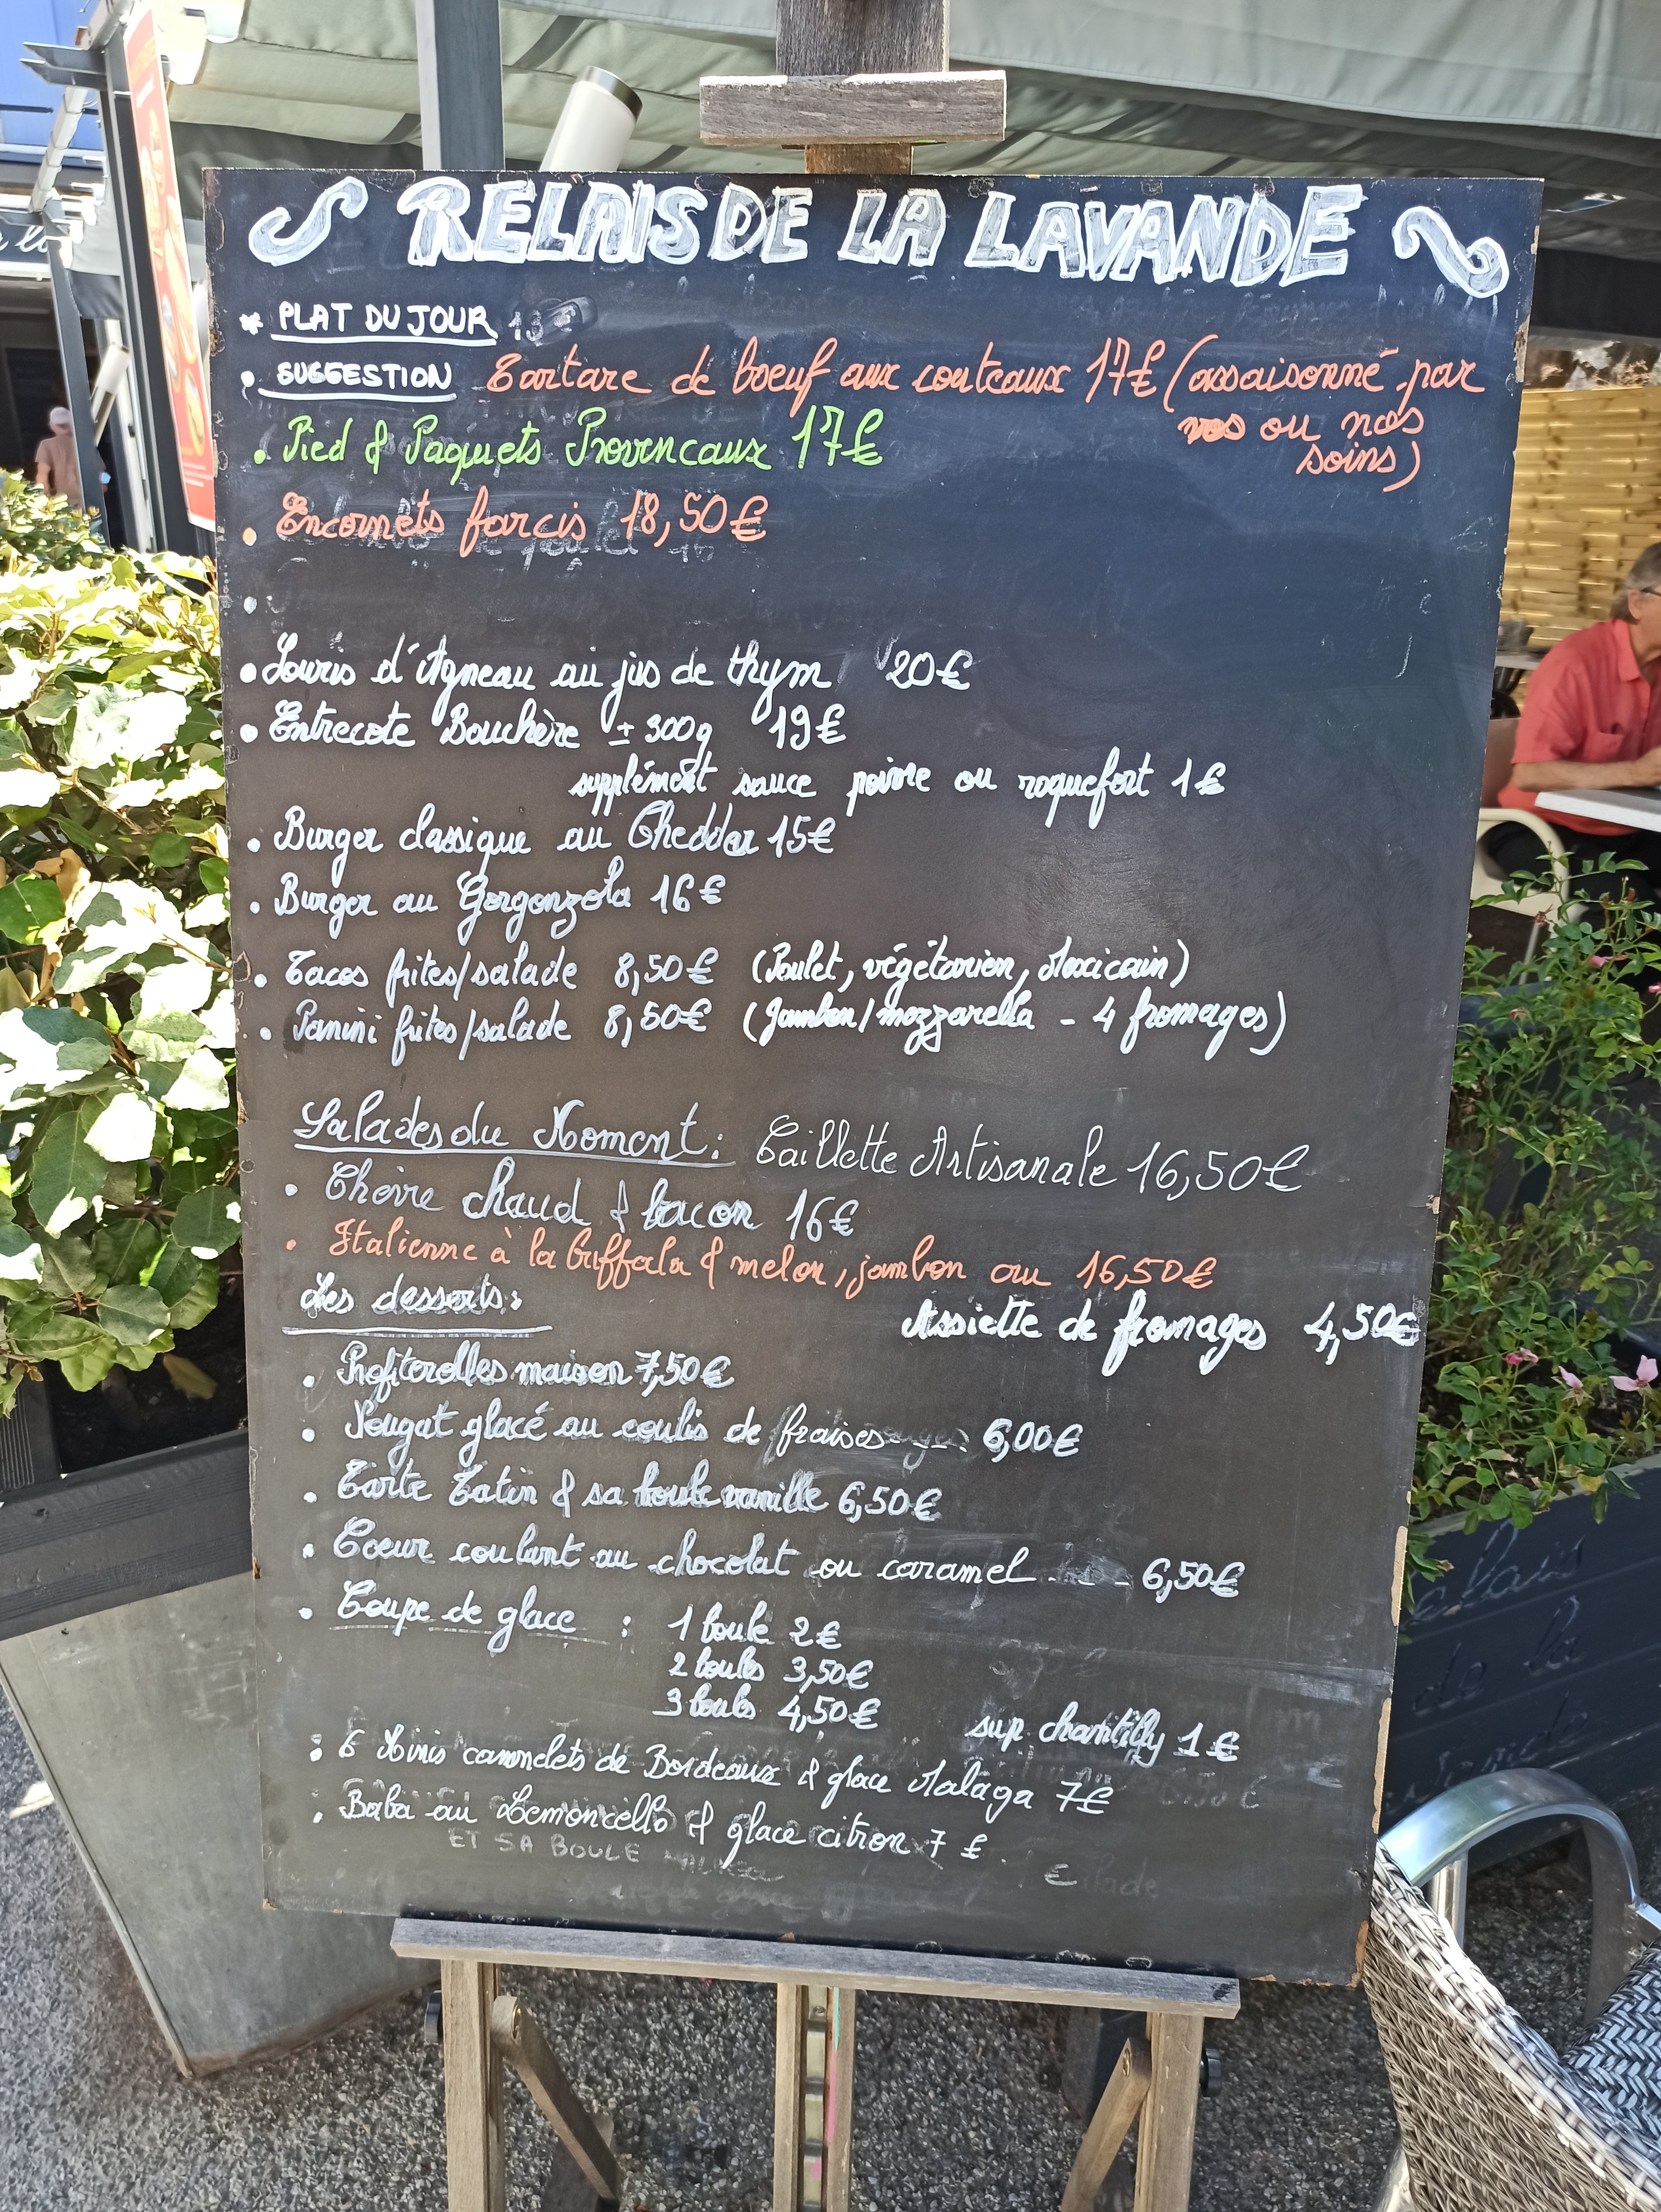 RELAIS DE LA LAVANDE
* PLAT DU JOUR 13
• SUGGESTION Tartare de boeuf aux couteaux 17€ (assaisonné par
vos ou nos
soins)
• Pied & Paquets Provencaux 17€
• Encornets farcis 18,50€
• Souris d'Agneau au jus de thym 20€
• Entrecote Bouchère ± 300g 19€
supplément sauce poivre ou roquefort 1€
• Burger classique au Cheddar 15€
• Burger au Gorgonzola 16€
• Tacos frites/salade 8,50€ (Poulet, végétarien, Mexicain)
• Panini frites/salade 8,50€ (Jambon/mozzarella - 4 fromages)
Salades du Moment : Caillette Artisanale 16,50€
• Chèvre chaud & bacon 16€
• Italienne à la Buffala & melon, jambon cru 16,50€
Les desserts :
Assiette de fromages 4,50€
• Profiterolles maison 7,50€
• Nougat glacé au coulis de fraises 6,00€
• Tarte Tatin & sa boule vanille 6,50€
• Coeur coulant au chocolat ou caramel - - - 6,50€
• Coupe de glace : 1 boule 2€
2 boules 3,50€
3 boules 4,50€
sup chantilly 1€
• 6 Minis cannelets de Bordeaux & glace Malaga 7€
• Baba au Lemoncello & glace citron 7€
ET SA BOULE